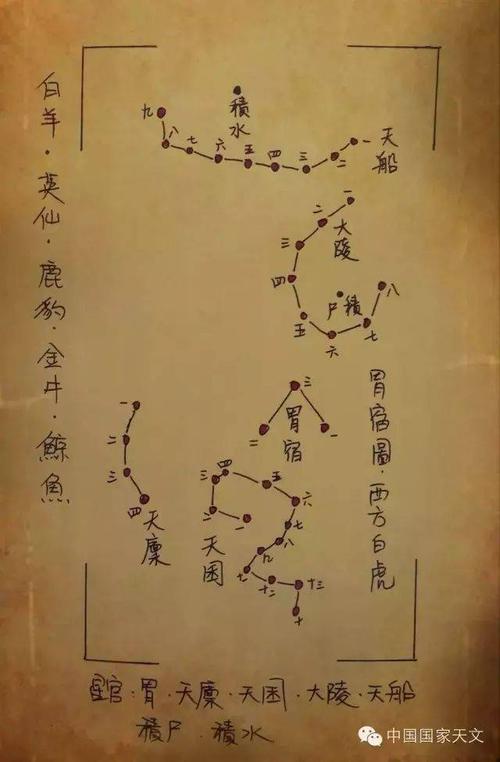 白羊·英仙·鹿豹·金牛·鲸魚
積水
九
八
七
六
五
四
三
二
一
天船
一
二
大陵
三
四
五
六
七
八
積尸
三
二
一
胃宿
胃宿圖·西方白虎
一
二
三
四
天廩
一
二
三
四
五
六
七
八
九
十二
十三
十
天困
星官:胃·天廩·天困·大陵·天船
積尸·積水
中国国家天文